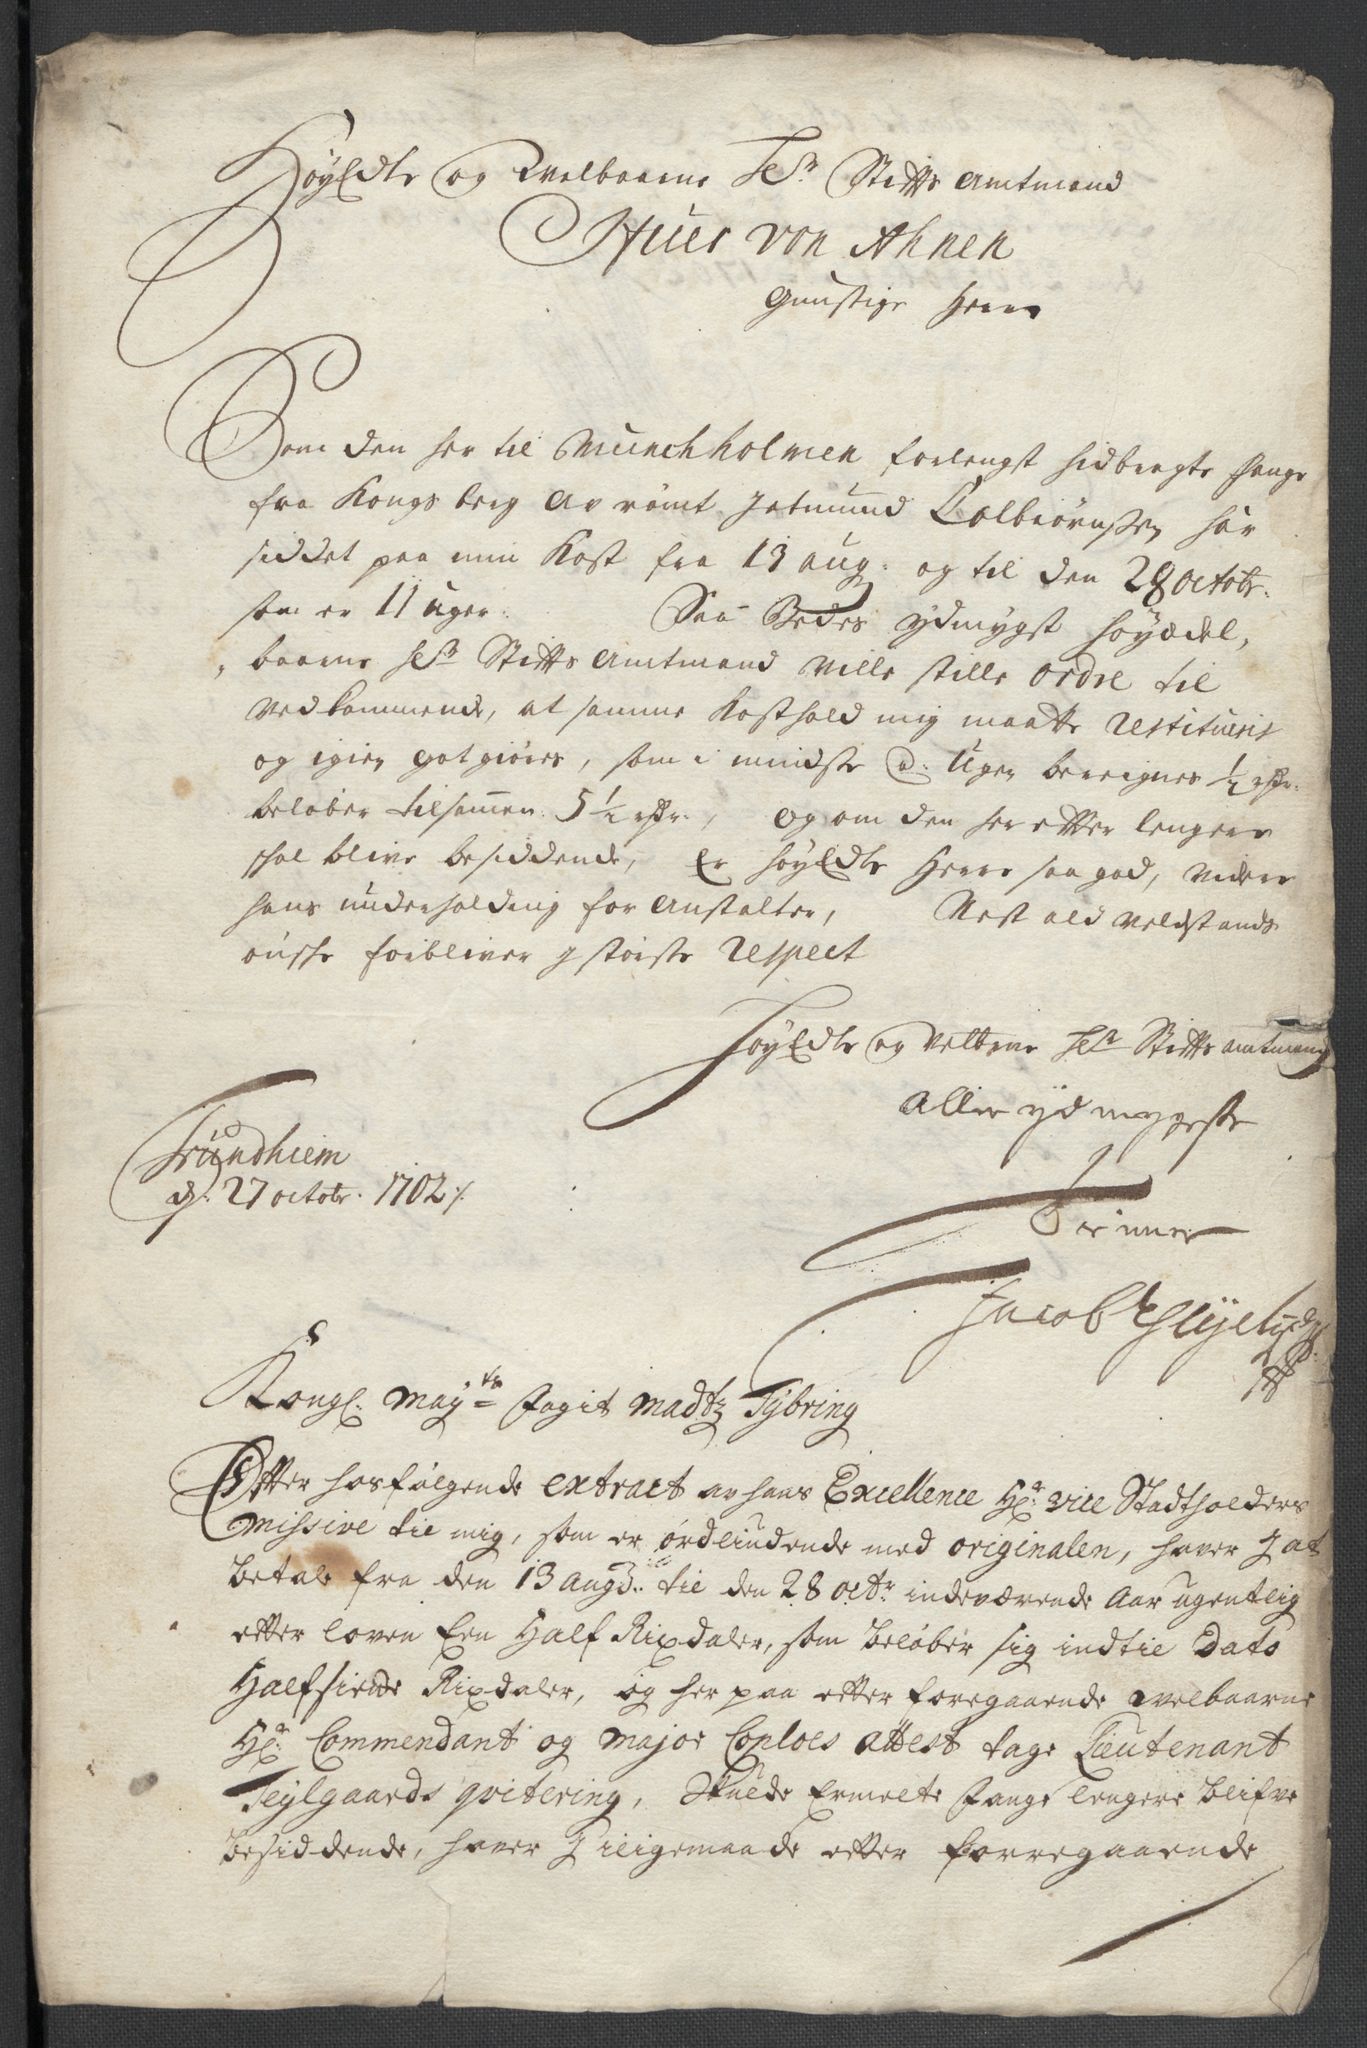 HøyEdle og Welbaarne Hr Stiffts Amtmand
Iffuer von Ahnen
gunstige Herre
Som den her til Munchholmen forlengst hidbragte fange
fra Kongsberg Av nömt Jetmund Colbiörnssen har
siddet paa min Kost fra 13 aug: og til den 28 octobr.
som er 11 uger. Saa Bedes ydmygst høyædel,
baarne Hr Stiffts Amtmand ville stille ordre til
vedkommende, at samme Kosthold mig maatte restitueris
og igien gotgiöres, som i mindste a: Ugen beregnes ½ rdr.
beløber tilsammen: 5½ rdr., og om den her effter lengere
skal blive besiddende, Er HøyEdle Herre saa god, videre
hans underholding for anstalter, Nest ald velstands
önske forbliver J störste respect
HøyEdle og Velbne Hr Stiffts amtmand
Aller ydmygeste
Tiener
Trundhiem
d. 27 octobr. 1702
Jacob
Kongl. Mayts Fogit Madtz Tybring
Effter hosfølgende extract av hans Excellence Hr. vice Stadtholders
missive til mig, som er ordliudende med originalen, haver J at
betale fra den 13 augs. til den 28 octr indeværende Aar ugentlig
effter loven Een Half Rixdaler, som beløber sig indtil Dato
Halfsiette Rixdaler, og her paa effter foregaaende welbaarne
Hr. Commendant og Major Coploes attest tage Lieutenant
Teylgaards qvitering, Skulde Ermelte Fange lengere blifve
besiddende, haver J iligemaade effter forregaaende